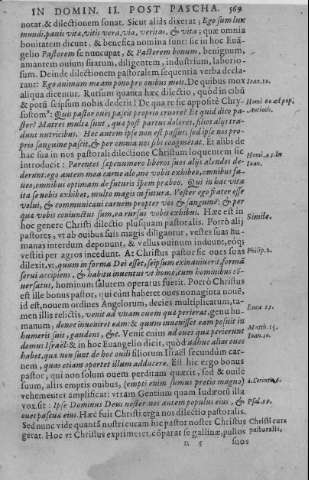 IN DOMIN. II. POST PASCHA. 569
notat, & dilectionem sonat. Sicut aliàs dixerat; Ego sum lux
mundi, panis vitæ, vitis vera, via, veritas, & vita; quæ omnia
bonitatem dicunt, & benefica nomina sunt: sic in hoc Euā-
gelio Pastorem se nuncupat, & Pastorem bonum, benignum,
amantem ouium suarum, diligentem, industrium, laborio-
sum. Deinde dilectionem pastoralem sequentia verba decla-
rant: Ego animam meam pono pro ouibus meis. De quibus mox
aliqua dicentur. Rursum quanta hæc dilectio, quòd in cibū
& potū seipsum nobis dederit! De qua re sic appositè Chry-
sostom. Quis pastor oues pascit proprio cruore? Et quid dico pa-
stor? Matres multæ sunt, quæ post partus dolores, filios alijs tra-
dunt nutricibus. Hoc autem ipse non est passus: sed ipse nos pro-
prio sanguine pascit, & per omnia nos sibi coagmentat. Et alibi de
hac sua in nos pastorali dilectione Christum loquentem sic
introducit: Parentes sæpenumero liberos suos alijs alendos de-
derunt: ego autem mea carne alo, me vobis exhibeo, omnibus fa-
ueo, omnibus optimam de futuris spem præbeo. Qui in hac vita
ita se vobis exhibet, multo magis in futura. Vester ego frater esse
volui, & communicaui carnem propter vos & sanguinē: & per
quæ vobis coniunctus sum, ea rursus vobis exhibui. Hæc est in
hoc genere Christi dilectio plusquam pastoralis. Porrò alij
pastores, vt ab ouibus suis magis diligantur, vestes suas hu-
manas interdum deponunt, & vellus ouinum induunt, eóq;
vestiti per agros incedunt. At Christus pastor sic oues suas
dilexit, vt, quum in forma Dei esset, seipsum exinanierit, formā
serui accipiens, & habitu inuentus vt homo, cum hominibus cō-
uersatus, hominum salutem operatus fuerit. Porrò Christus
est ille bonus pastor, qui etsi haberet oues nonaginta nouē,
id est, nouem ordines Angelorum, decies multiplicatum, ta-
men illis relictis, venit ad vnam ouem quæ perierat, genu hu-
manum, donec inueniret eam: & quum inuenisset eam posuit in
humeris suis, gaudens, &c. Venit enim ad oues quæ perierant
domus Israël: & in hoc Euangelio dicit, quòd adhuc alias oues
habet, quæ non sunt de hoc ouili filiorum Israël secundùm car-
nem, quas etiam oportet illum adducere. Est hic ergo bonus
pastor, qui non solùm ouem perditam quærit, sed & ouile
suum, alijs emptis ouibus, (empti enim sumus pretio magno)
vehementer amplificat: vtram Gentium quàm Iudæorū illa
vox sit: Ipse Dominus Deus noster: nos autem populus eius, &
oues pascuæ eius. Hæc fuit Christi erga nos dilectio pastoralis.
Sed nunc vide quantā nostri curam hic pastor noster Christus
gerat. Hoc vt Christus exprimeret, cōparat se gallinæ, pullos
n 5 suos
Ioan. 10.
Similé.
Philip. 2.
Luca 15.
Matth. 15.
Ioan. 10.
1. Corinth. 6.
Psal. 99.
Christi cura
pastoralis.